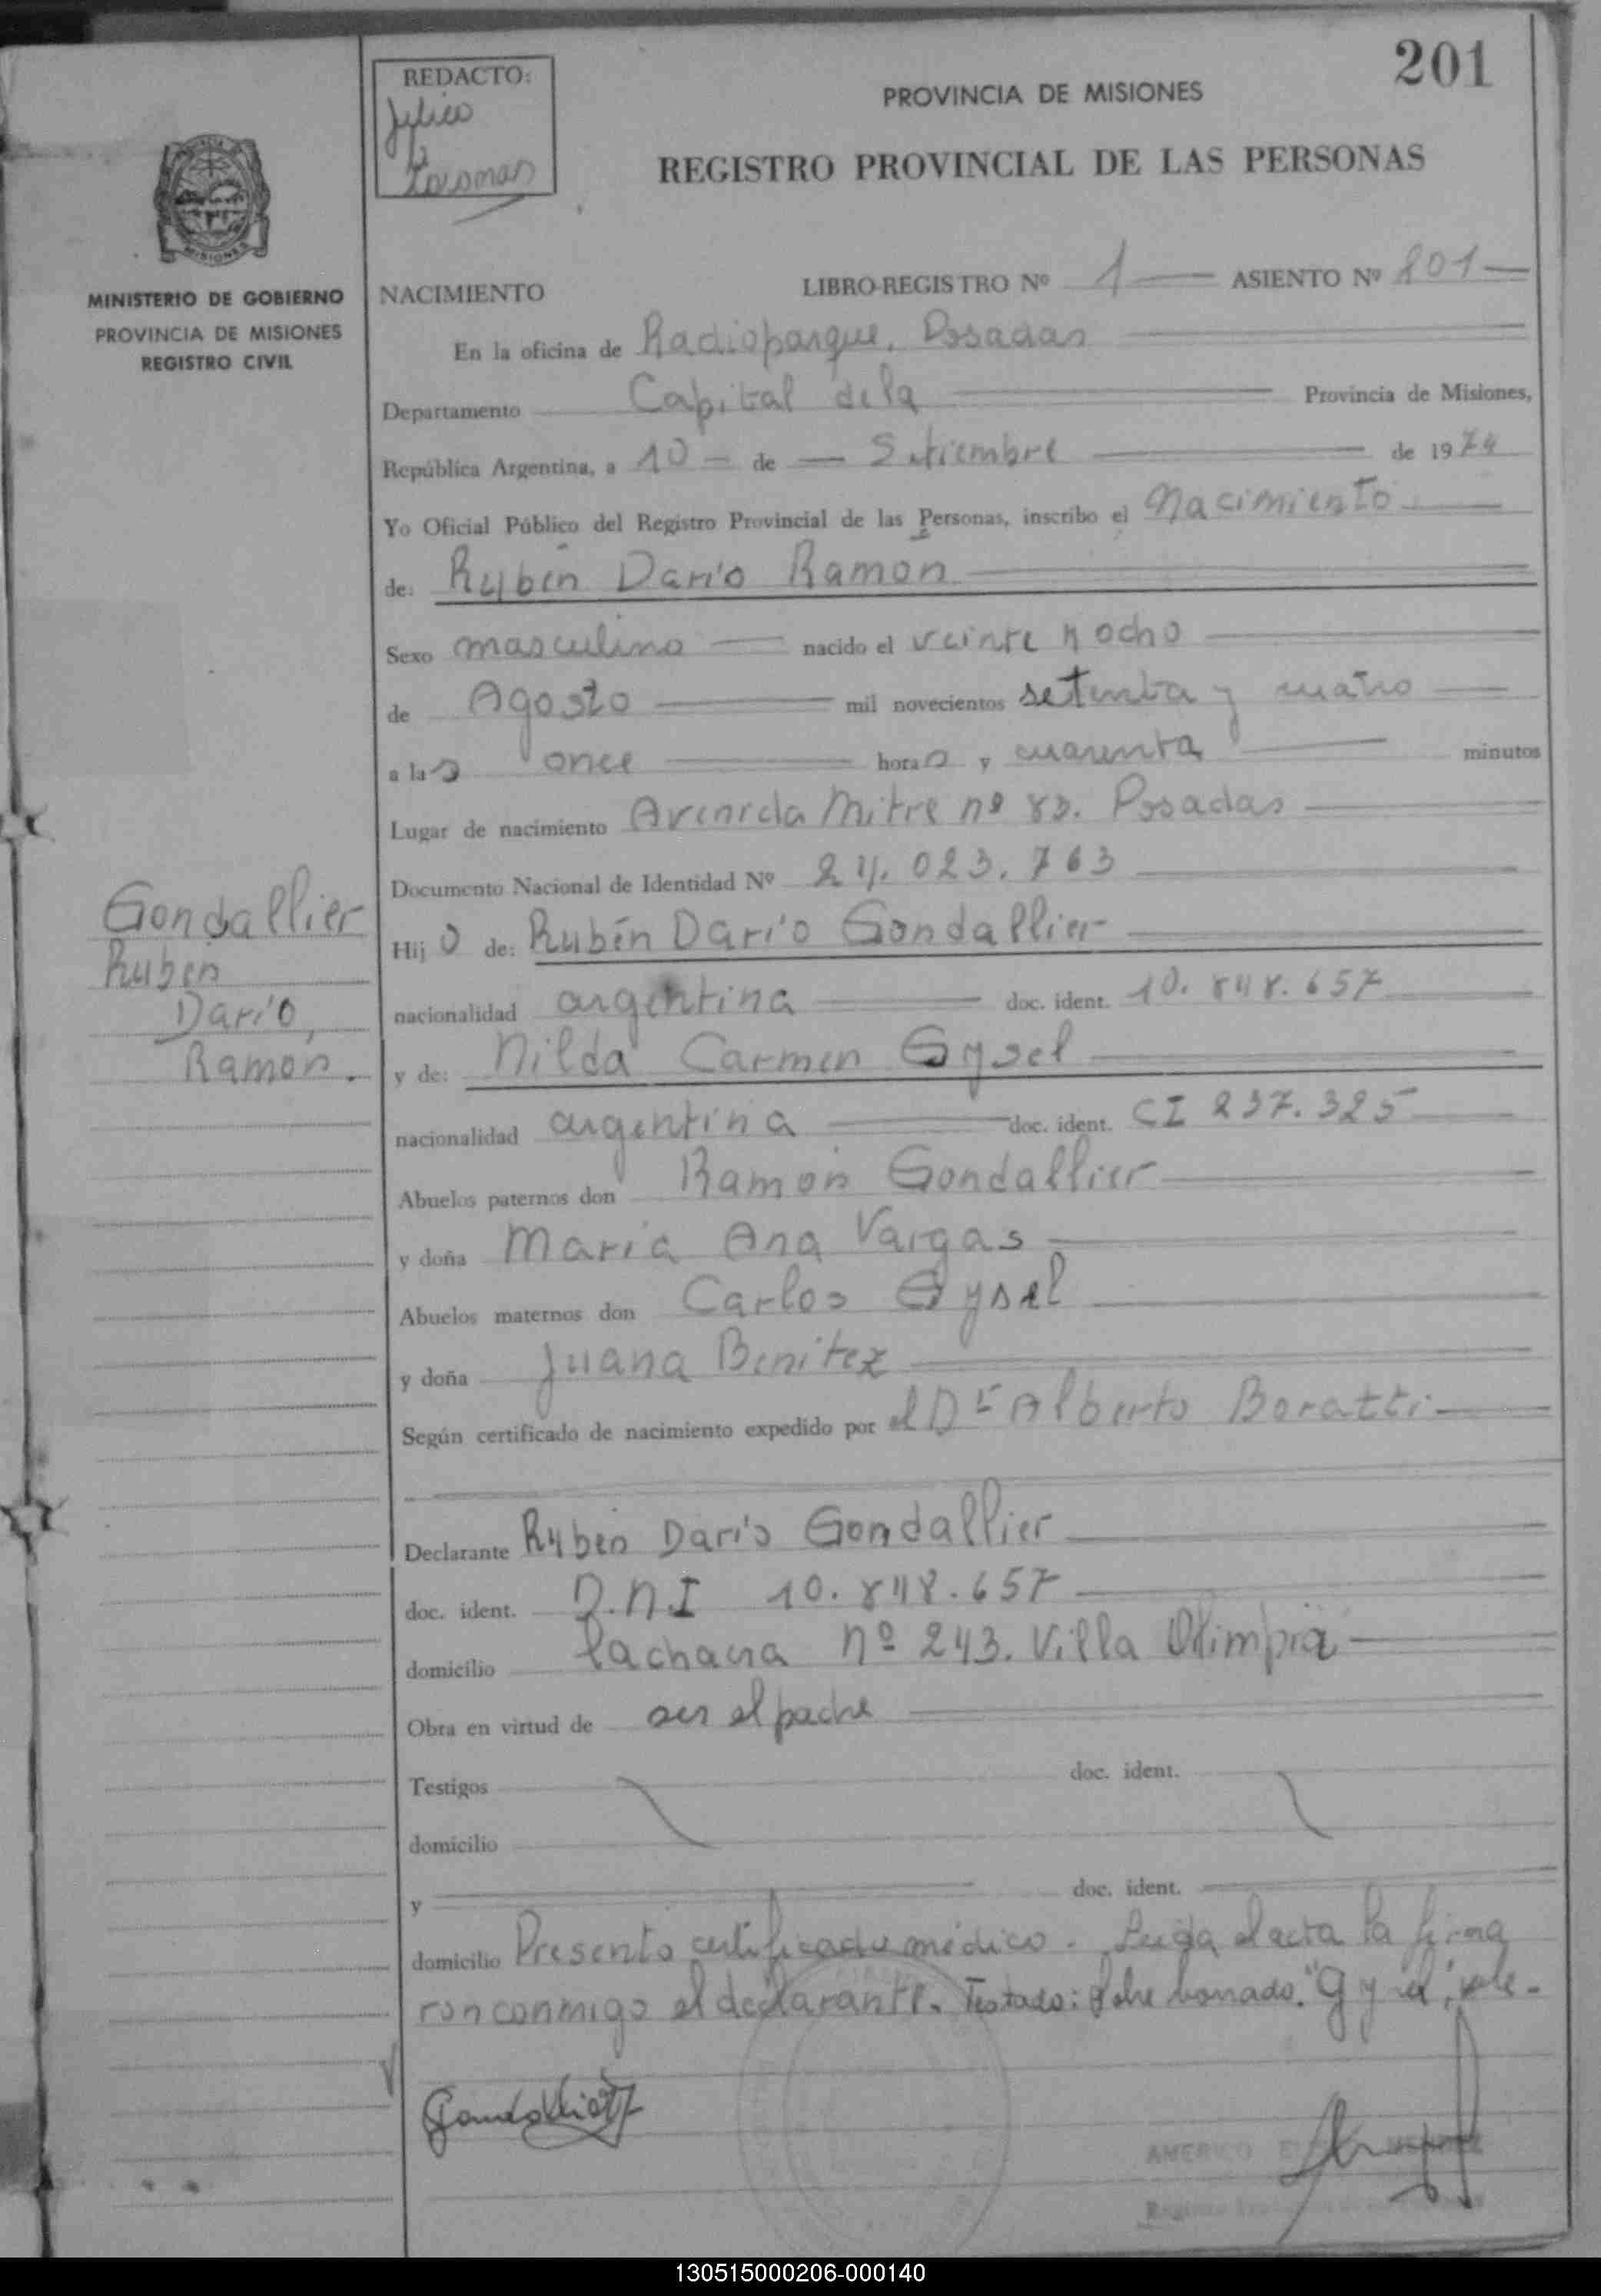 201
REDACTO:
PROVINCIA DE MISIONES
REGISTRO PROVINCIAL DE LAS PERSONAS
MISIONES
MINISTERIO DE GOBIERNO
PROVINCIA DE MISIONES
REGISTRO CIVIL
NACIMIENTO LIBRO-REGISTRO Nº 1 ASIENTO Nº 801
En la oficina de Radioparque, Posadas
Departamento Capital de la Provincia de Misiones,
República Argentina, a 10 de Setiembre de 1974
Yo Oficial Público del Registro Provincial de las Personas, inscribo el Nacimiento
de: Rubén Darío Ramon
Sexo masculino nacido el veinte y ocho
de Agosto mil novecientos setenta y cuatro
a las once horas y cuarenta minutos
Lugar de nacimiento Avenida Mitre nº 83. Posadas
Documento Nacional de Identidad Nº 24.023.763
Gondallier
Ruben
Darío,
Ramon.
Hijo de: Rubén Darío Gondallier
nacionalidad argentina doc. ident. 10.848.657
y de: Nilda Carmen Gysel
nacionalidad argentina doc. ident. CI 237.325
Abuelos paternos don Ramon Gondallier
y doña Maria Ana Vargas
Abuelos maternos don Carlos Gysel
y doña Juana Benitez
Según certificado de nacimiento expedido por el Dr Alberto Boratti
Declarante Ruben Darío Gondallier
doc. ident. D.N.I 10.848.657
domicilio La chacra nº 243. Villa Olimpia
Obra en virtud de ser el padre
Testigos doc. ident.
domicilio
y doc. ident.
domicilio Presento certificado médico. Leida el acta la firma
ron conmigo el declarante. Testado: Sobre borrado. "G y sel", vale.
AMERICO
130515000206-000140